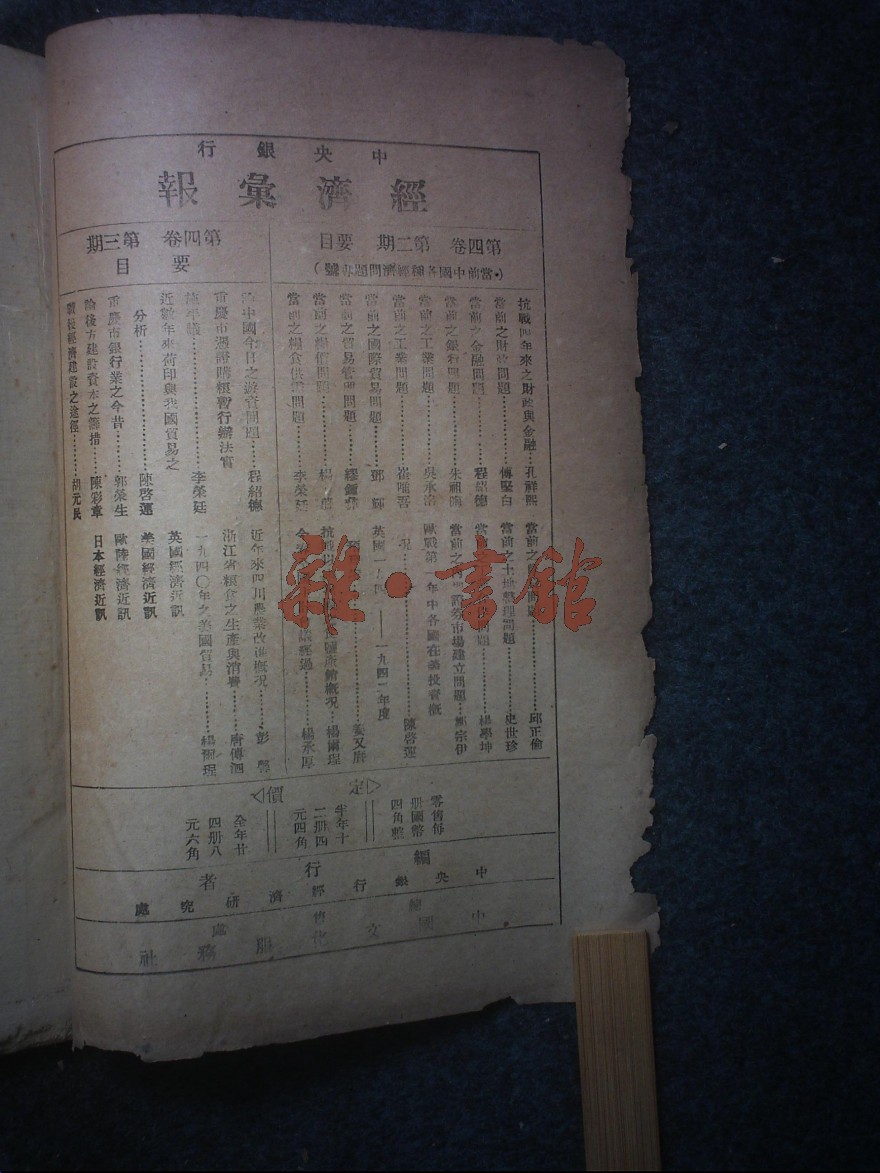 中央銀行
經濟彙報
第四卷 第二期 要目
(•當前中國各種經濟問題專號)
抗戰四年來之財政與金融……孔祥熙
當前之財政問題……傅堅白
當前之金融問題……程紹德
當前之銀行問題……朱祖晦
當前之工業問題……吳承洛
當前之工業問題……崔唯吾
當前之國際貿易問題……鄧 輝
當前之貿易管理問題……繆鍾彝
當前之糧價問題……楊
當前之糧食供需問題……李榮廷
當前之
問題……邱正倫
當前之土地整理問題……史世珍
問題……楊學坤
當前之內 證券市場建立問題……鄒宗伊
歐戰第一年中各國在美投資概
況……陳啓運
英國一九四 ——一九四二年度
……姜又府
抗戰 概況……楊爾理
經過……楊承厚
第四卷 第三期
要目
中國今日之游資問題……程紹德
重慶市憑證購糧暫行辦法實
施芻議……李榮廷
近數年來荷印與我國貿易之
分析……陳啓運
重慶市銀行業之今昔……郭榮生
論後方建設資本之籌措……陳彩章
戰後經濟建設之途徑……胡元民
近年來四川農業改進概況……彭
浙江省糧食之生產與消費……唐傳泗
一九四〇年之美國貿易……楊爾理
英國經濟近訊
美國經濟近訊
歐陸經濟近訊
日本經濟近訊
定價
零售每
册國幣
四角整
半年十
二册四
元四角
全年廿
四册八
元六角
編行者
中央銀行經濟研究處
總售處
中國文化服務社
雜•書館